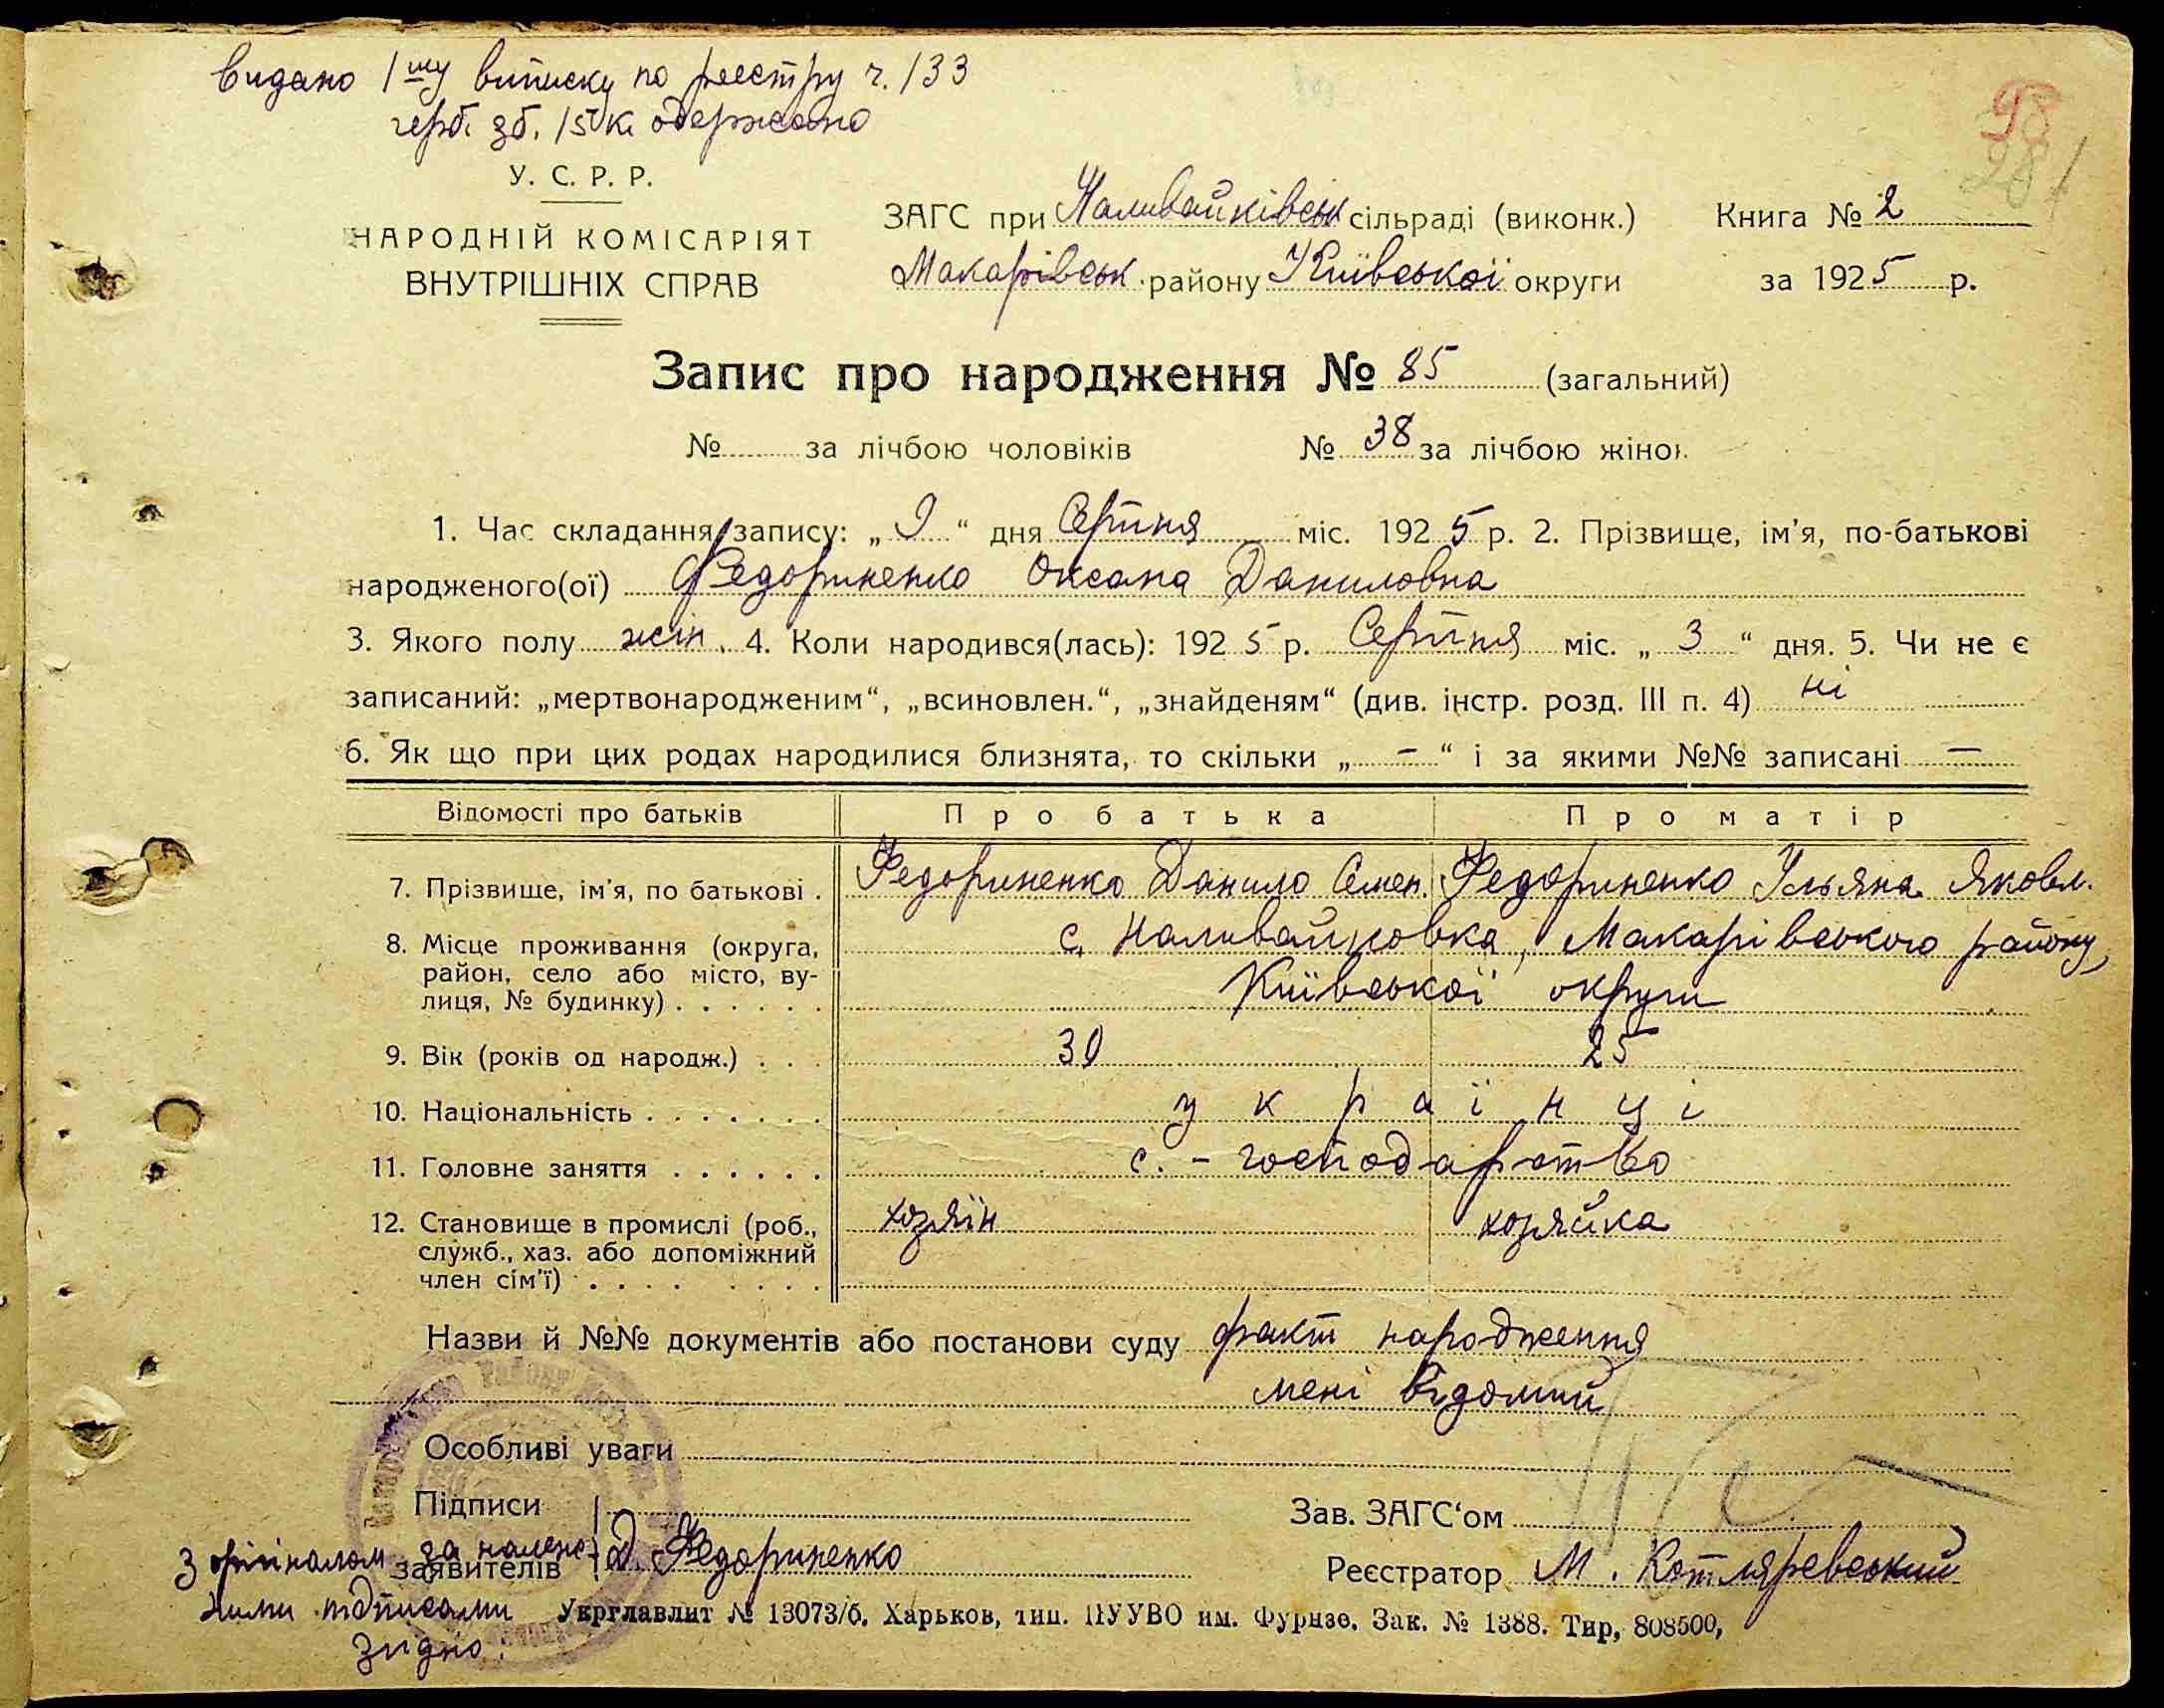 Видано 1шу виписку по реєстру ч. 133
герб. зб. 15 к. одержано
98
281
У. С. Р. Р.
НАРОДНІЙ КОМІСАРІЯТ
ВНУТРІШНІХ СПРАВ
ЗАГС при Наливайківськ сільраді (виконк.) Книга № 2
Макарівськ району Київської округи за 1925 р.
Запис про народження № 85 (загальний)
№ за лічбою чоловіків № 38 за лічбою жінок
1. Час складання запису: „ 9 “ дня Серпня міс. 1925 р. 2. Прізвище, ім'я, по-батькові
народженого(ої) Федориненко Оксана Даниловна
3. Якого полу жін. 4. Коли народився(лась): 1925 р. Серпня міс. „ 3 “ дня. 5. Чи не є
записаний: „мертвонародженим“, „всиновлен.“, „знайденям“ (див. інстр. розд. III п. 4) ні
6. Як що при цих родах народилися близнята, то скільки „ – “ і за якими №№ записані —
Відомості про батьків Про батька Про матір
7. Прізвище, ім'я, по батькові . Федориненко Данило Семен. Федориненко Ульяна Яковл.
8. Місце проживання (округа, район, село або місто, вулиця, № будинку) . . . . . . с. Наливайковка, Макарівського району,
Київської округи
9. Вік (років од народж.) . . . 30 25
10. Національність . . . . . . . українці
11. Головне заняття . . . . . . с.-господарство
12. Становище в промислі (роб., служб., хаз. або допоміжний член сім'ї) . . . . . . . . хозяїн хозяйка
Назви й №№ документів або постанови суду факт народження
мені відомий
Особливі уваги
Підписи Зав. ЗАГС'ом
заявителів Д. Федориненко Реєстратор М. Котляревський
З орігіналом за належ-
ними підписами
згідно:
Укрглавлит № 13073/б. Харьков, тип. ПУУВО им. Фурнзе. Зак. № 1388. Тир, 808500,